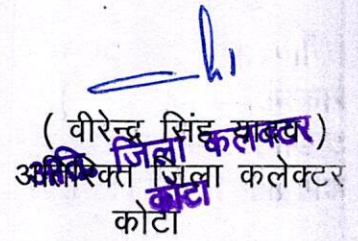 ( वीरेन्द्र सिंह यादव )
अतिरिक्त जिला कलेक्टर
कोटा
अति० जिला कलक्टर
कोटा